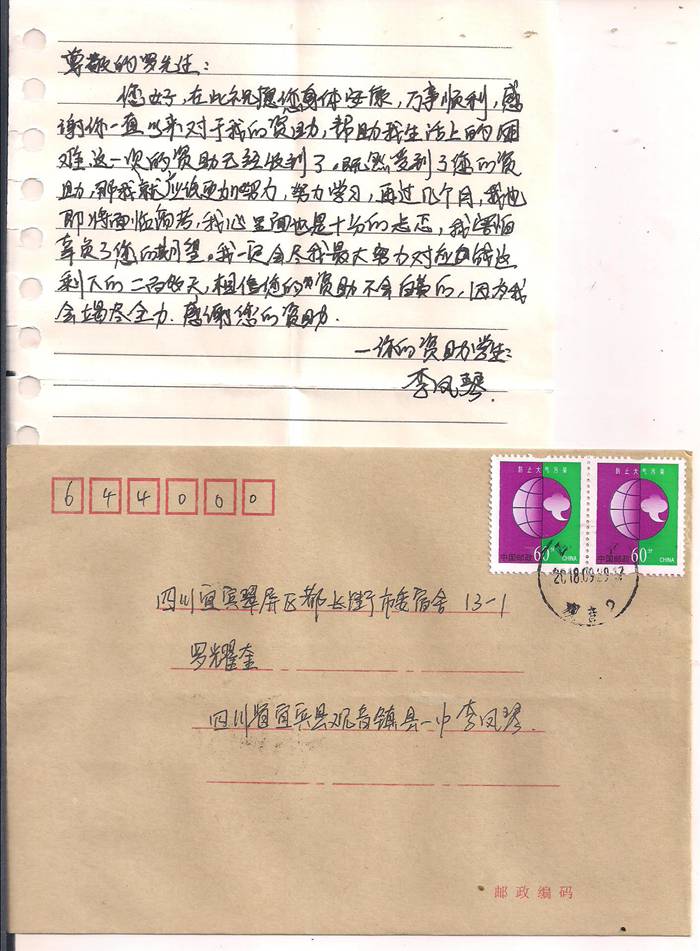 尊敬的罗先生:
您好,在此祝愿您身体安康,万事顺利,感
谢你一直以来对于我的资助,帮助我生活上的困
难.这一次的资助已经收到了.既然受到了您的资
助,那我就应该更加努力,努力学习,再过几个月,我也
即将面临高考,我心里面也是十分的忐忑,我害怕
辜负了您的期望。我一定会尽我最大努力对应这
剩下的二百多天,相信您的资助不会白费的,因为我
会竭尽全力.感谢您的资助.
—你的资助学生:
李凤琴.
644000
防止大气污染
防止大气污染
中国邮政 60分 CHINA
中国邮政 60分 CHINA
2018.09.29.
四川宜宾翠屏区都长街市委宿舍13-1
罗耀奎
四川省宜宾县观音镇县一中李凤琴.
邮政编码